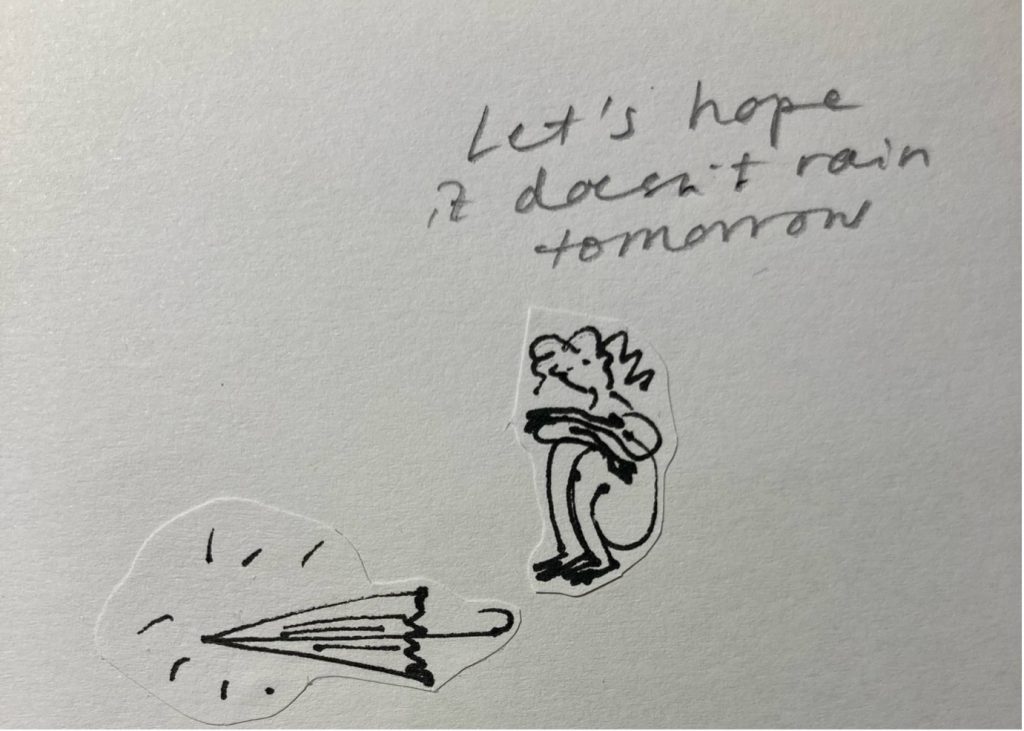 Let's hope
it doesn't rain
tomorrow